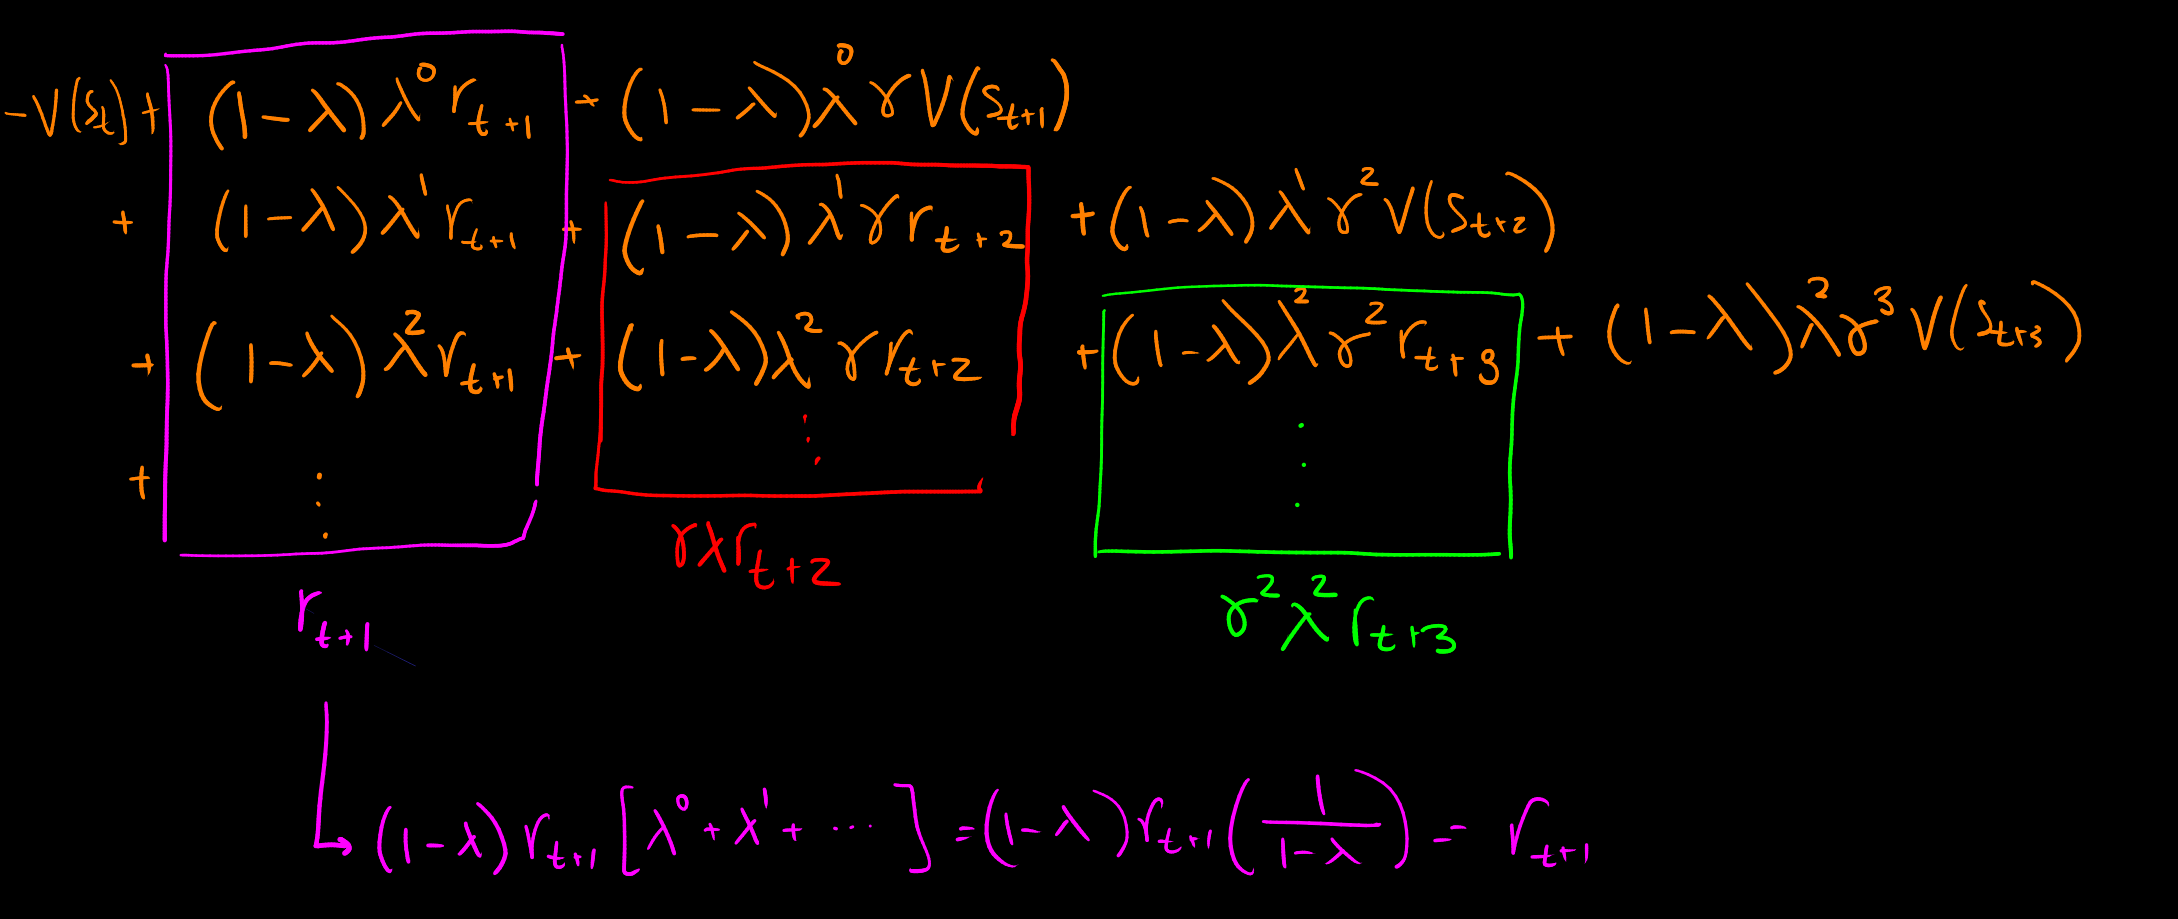 -V(S_t) + (1-λ)λ^0 r_{t+1} + (1-λ)λ^0 γV(S_{t+1})
+ (1-λ)λ^1 r_{t+1} + (1-λ)λ^1 γ r_{t+2} + (1-λ)λ^1 γ^2 V(S_{t+2})
+ (1-λ)λ^2 r_{t+1} + (1-λ)λ^2 γ r_{t+2} + (1-λ)λ^2 γ^2 r_{t+3} + (1-λ)λ^2 γ^3 V(S_{t+3})
+ ⋮ ⋮ ⋮
r_{t+1} γλr_{t+2} γ^2 λ^2 r_{t+3}
↳ (1-λ) r_{t+1} [λ^0 + λ^1 + ⋯] = (1-λ) r_{t+1} (1/(1-λ)) = r_{t+1}